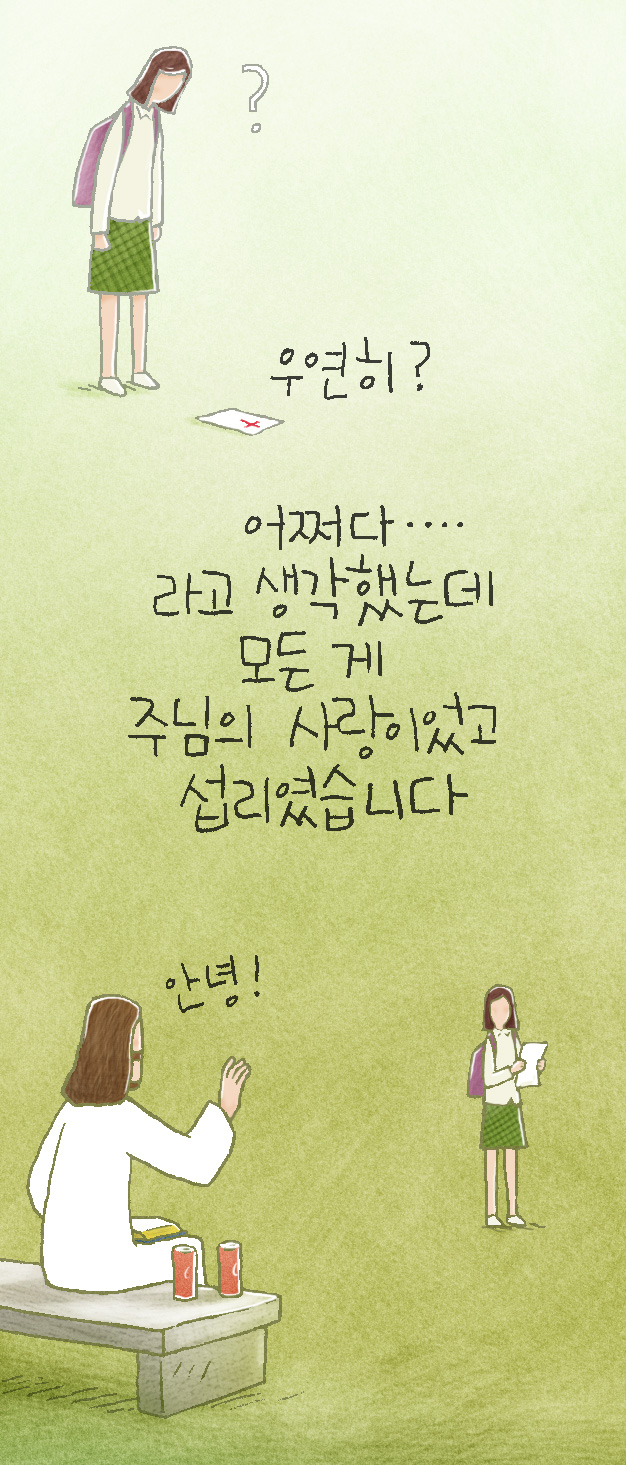 ?
우연히?
어쩌다····
라고 생각했는데
모든 게
주님의 사랑이었고
섭리였습니다
안녕!